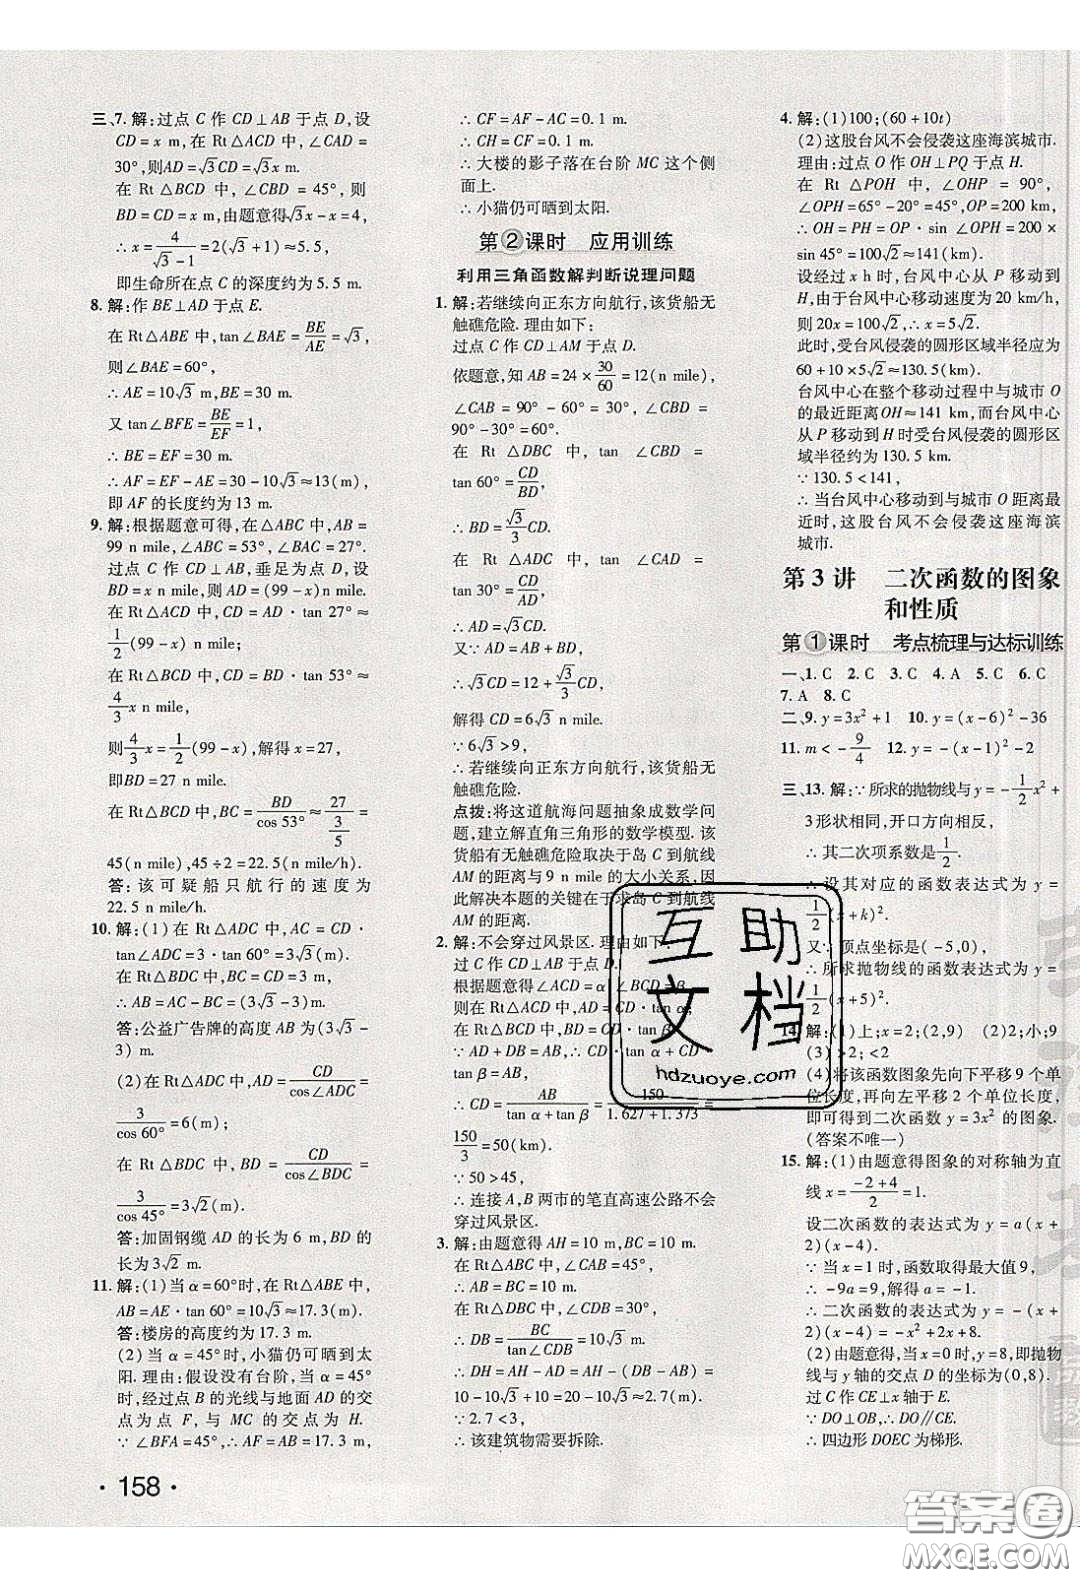 三、7. 解:过点 C 作 CD⊥AB 于点 D,设
CD=x m,在 Rt△ACD 中,∠CAD=
30°,则AD=√3CD=√3x m.
在 Rt△BCD 中,∠CBD=45°,则
BD=CD=x m,由题意得√3x-x=4,
∴x=4/(√3-1)=2(√3+1)≈5.5,
即生命所在点 C 的深度约为 5.5 m.
8. 解:作 BE⊥AD 于点 E.
在 Rt△ABE 中,tan∠BAE=BE/AE=√3,
则∠BAE=60°,
∴AE=10√3 m,BE=30 m.
又 tan∠BFE=BE/EF=1,
∴BE=EF=30 m.
∴AF=EF-AE=30-10√3≈13(m),
即 AF 的长度约为 13 m.
9. 解:根据题意可得,在△ABC 中,AB=
99 n mile,∠ABC=53°,∠BAC=27°.
过点 C 作 CD⊥AB,垂足为点 D,
设 BD=x n mile,则 AD=(99-x)n mile.
在 Rt△ACD 中,CD=AD·tan 27°≈
1/2(99-x)n mile.
在 Rt△BCD 中,CD=BD·tan 53°≈
4/3 x n mile,
则4/3 x=1/2(99-x),解得 x=27,
即BD=27 n mile.
在 Rt△BCD 中,BC=BD/cos 53°≈27/(3/5)=
45(n mile),45÷2=22.5(n mile/h).
答:该可疑船只航行的速度为
22.5 n mile/h.
10. 解:(1)在 Rt△ADC 中,AC=CD·
tan∠ADC=3·tan 60°=3√3(m),
∴AB=AC-BC=(3√3-3)(m).
答:公益广告牌的高度 AB 为(3√3-
3)m.
(2)在 Rt△ADC 中,AD=CD/cos∠ADC=
3/cos 60°=6(m);
在 Rt△BDC 中,BD=CD/cos∠BDC=
3/cos 45°=3√2(m).
答:加固钢缆 AD 的长为 6 m,BD 的
长为 3√2 m.
11. 解:(1)当 α=60°时,在 Rt△ABE 中,
AB=AE·tan 60°=10√3≈17.3(m).
答:楼房的高度约为 17.3 m.
(2)当 α=45°时,小猫仍可晒到太
阳.理由:假设没有台阶,当 α=45°
时,经过点 B 的光线与地面 AD 的交
点为点 F,与 MC 的交点为 H.
∵∠BFA=45°,∴AF=AB=17.3 m,
· 158 ·
∴CF=AF-AC=0.1 m.
∴CH=CF=0.1 m.
∴大楼的影子落在台阶 MC 这个侧
面上.
∴小猫仍可晒到太阳.
第②课时 应用训练
利用三角函数解判断说理问题
1. 解:若继续向正东方向航行,该货船无
触礁危险.理由如下:
过点 C 作 CD⊥AM 于点 D.
依题意,知 AB=24×30/60=12(n mile),
∠CAB=90°-60°=30°,∠CBD=
90°-30°=60°.
在 Rt △DBC 中,tan ∠CBD=
tan 60°=CD/BD,
∴BD=√3/3 CD.
在 Rt △ADC 中,tan ∠CAD=
tan 30°=CD/AD,
∴AD=√3CD.
又∵AD=AB+BD,
∴√3CD=12+√3/3 CD,
解得 CD=6√3 n mile.
∵6√3>9,
∴若继续向正东方向航行,该货船无
触礁危险.
点拨:将这道航海问题抽象成数学问
题,建立解直角三角形的数学模型.该
货船有无触礁危险取决于岛 C 到航线
AM 的距离与 9 n mile 的大小关系,因
此解决本题的关键在于求岛 C 到航线
AM 的距离.
2. 解:不会穿过风景区.理由如下:
过 C 作 CD⊥AB 于点 D,
根据题意得∠ACD=α,∠BCD=β,
则在 Rt△ACD 中,AD=CD·tan α;
在 Rt△BCD 中,BD=CD·tan β.
∵AD+DB=AB,∴CD·tan α+CD·
tan β=AB,
∴CD=AB/(tan α+tan β)=150/(1.627+1.373)=
150/3=50(km).
∵50>45,
∴连接 A,B 两市的笔直高速公路不会
穿过风景区.
3. 解:由题意得 AH=10 m,BC=10 m,
在 Rt△ABC 中,∠CAB=45°,
∴AB=BC=10 m.
在 Rt△DBC 中,∠CDB=30°,
∴DB=BC/tan∠CDB=10√3 m,
∴DH=AH-AD=AH-(DB-AB)=
10-10√3+10=20-10√3≈2.7(m).
∵2.7<3,
∴该建筑物需要拆除.
4. 解:(1)100;(60+10t)
(2)这股台风不会侵袭这座海滨城市.
理由:过点 O 作 OH⊥PQ 于点 H.
在 Rt△POH 中,∠OHP=90°,
∠OPH=65°-20°=45°,OP=200 km,
∴OH=PH=OP·sin∠OPH=200×
sin 45°=100√2≈141(km).
设经过 x h 时,台风中心从 P 移动到
H,由于台风中心移动速度为 20 km/h,
则 20x=100√2,∴x=5√2.
此时,受台风侵袭的圆形区域半径应为
60+10×5√2≈130.5(km).
台风中心在整个移动过程中与城市 O
的最近距离 OH≈141 km,而台风中心
从 P 移动到 H 时受台风侵袭的圆形区
域半径约为 130.5 km.
∵130.5<141,
∴当台风中心移动到与城市 O 距离最
近时,这股台风不会侵袭这座海滨
城市.
第 3 讲 二次函数的图象
和性质
第①课时 考点梳理与达标训练
一、1. C 2. C 3. C 4. A 5. C 6. C
7. A 8. C
二、9. y=3x²+1 10. y=(x-6)²-36
11. m<-9/4 12. y=-(x-1)²-2
三、13. 解:∵所求的抛物线与 y=-1/2 x²+
3形状相同,开口方向相反,
∴其二次项系数是1/2.
∴设其对应的函数表达式为 y=
1/2(x+k)².
又∵顶点坐标是(-5,0),
∴所求抛物线的函数表达式为 y=
1/2(x+5)².
14. 解:(1)上;x=2;(2,9) (2)小;9
(3)>2;<2
(4)将该函数图象先向下平移 9 个单
位长度,再向左平移 2 个单位长度,
即可得到二次函数 y=3x² 的图象.
(答案不唯一)
15. 解:(1)由题意得图象的对称轴为直
线 x=(-2+4)/2=1.
设二次函数的表达式为 y=a(x+
2)(x-4).
∵当 x=1 时,函数取得最大值 9,
∴-9a=9,解得 a=-1.
∴二次函数的表达式为 y=-(x+
2)(x-4)=-x²+2x+8.
(2)由题意得,当 x=0 时,y=8,即抛物
线与 y 轴的交点 D 的坐标为(0,8).
过 C 作 CE⊥x 轴于 E.
∵DO⊥OB,∴DO∥CE.
∴四边形 DOEC 为梯形.
互助
文档
hdzuoye.com
答案圈
MXQE.COM